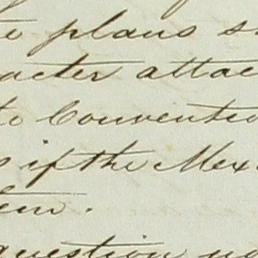 plans
acter attac
Conventio
if the Mex
question